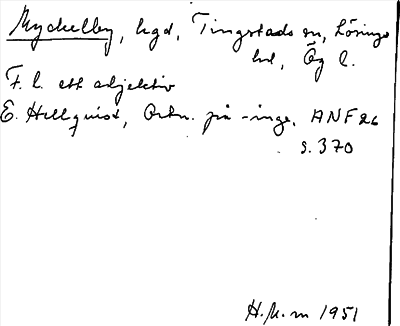 Myckelby, hgd, Tingstads sn, Lösings
hd, Ög l.
F. l. ett adjektiv
E. Hellquist, Ortn. på -inge, ANF 26
s. 370
H. M-m 1951